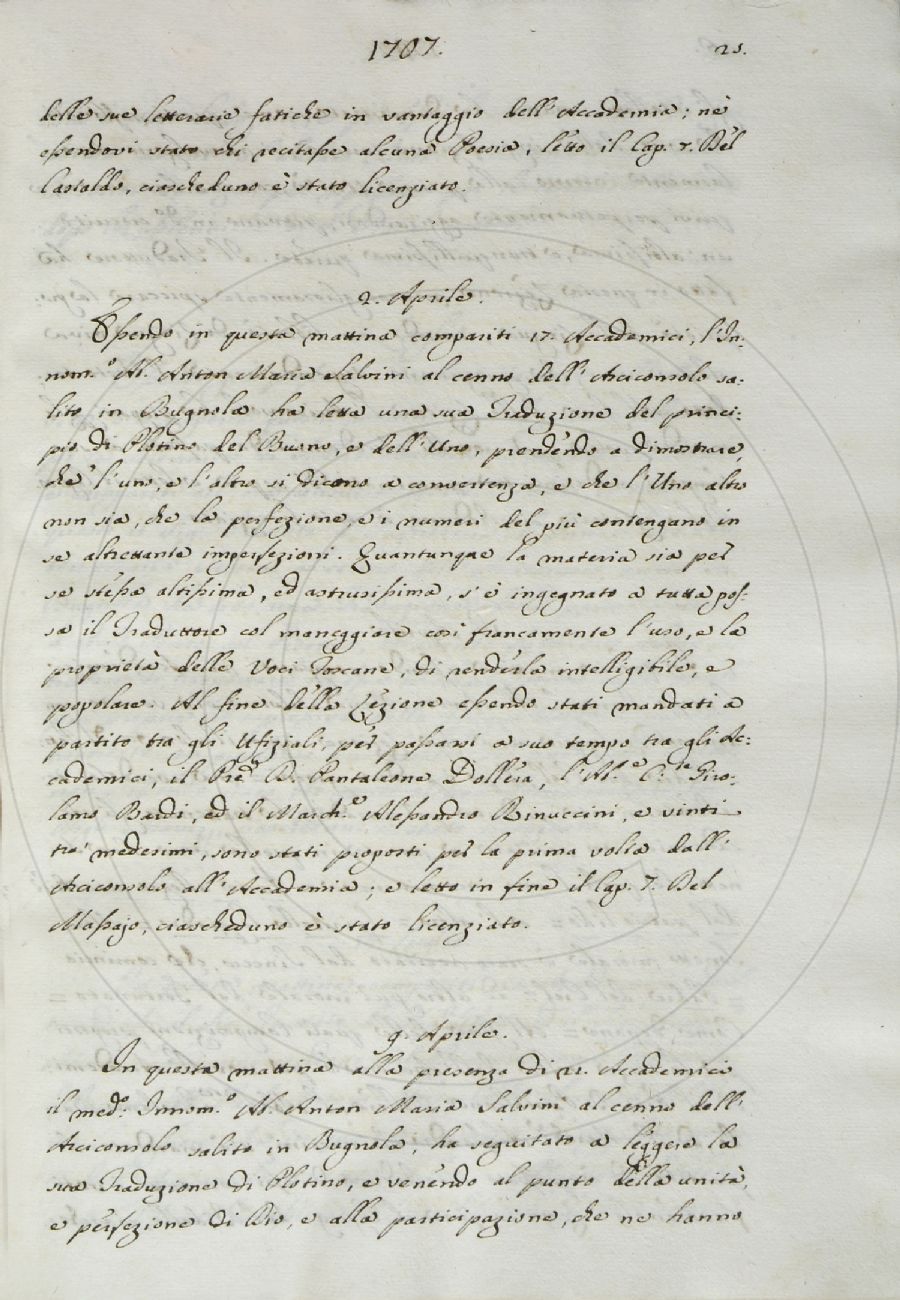 1707.
25.
delle sue letterarie fatiche in vantaggio dell'Accademia; nè
essendovi stato chi recitasse alcuna Poesia, letto il Cap. Del
Castaldo, ciascheduno è stato licenziato.
2. Aprile.
Essendo in questa mattina compariti 17. Accademici, l'In:
nom.º Ab. Anton Maria Salvini al cenno dell'Arciconsolo sa:
lito in Bugnola ha letta una sua Traduzione del princi:
pio di Plotino del Buono, e dell'Uno, prendendo a dimostrare,
che l'uno, e l'altro si dicono a convertenza, e che l'Uno altro
non sia, che la perfezione, e i numeri del più contengano in
se altrettante imperfezioni. Quantunque la materia sia per
se stessa altissima, ed astrusissima, s'è ingegnato a tutta pos:
sa il Traduttore col maneggiare così francamente l'uso, e la
proprietà delle Voci Toscane, di renderla intelligibile, e
popolare. Al fine della Lezione essendo stati mandati a
partito tra gli Ufiziali, per passarsi a suo tempo tra gli Ac:
cademici, il Pantaleone Dollera, l'Ab.e C.te Giro:
lamo Bardi, ed il March.e Alessandro Rinuccini, e vinti
tra' medesimi, sono stati proposti per la prima volta dall'
Arciconsolo all'Accademia; e letto in fine il Cap. 7. Del
Massajo, ciascheduno è stato licenziato.
9. Aprile.
In questa mattina alla presenza di 21. Accademici
il med.o Innom.º Ab. Anton Maria Salvini al cenno dell'
Arciconsolo salito in Bugnola, ha seguitato a leggere la
sua Traduzione di Plotino, e venendo al punto della unità,
e perfezione di Dio, e alla participazione, che ne hanno